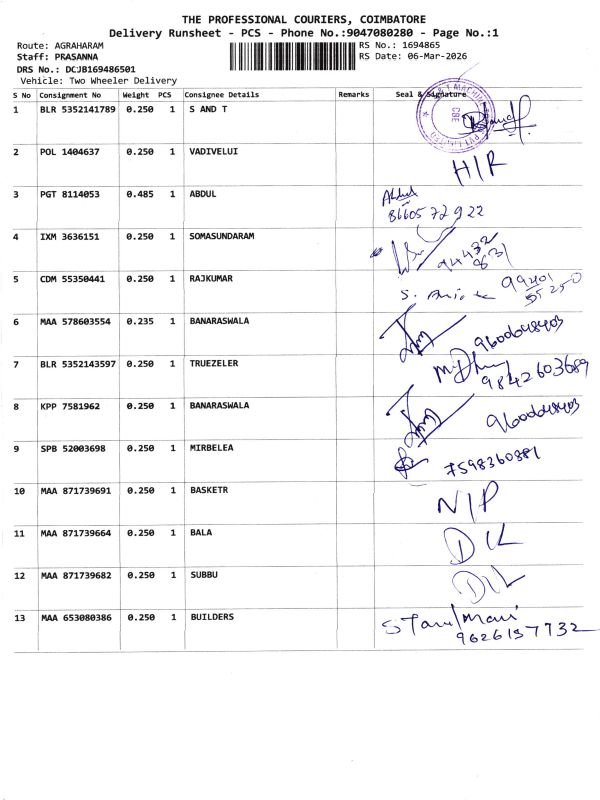 THE PROFESSIONAL COURIERS, COIMBATORE
Delivery Runsheet - PCS - Phone No.:9047080280 - Page No.:1
Route: AGRAHARAM RS No.: 1694865
Staff: PRASANNA RS Date: 06-Mar-2026
DRS No.: DCJB169486501
Vehicle: Two Wheeler Delivery
S No Consignment No Weight PCS Consignee Details Remarks Seal & Signature
1 BLR 5352141789 0.250 1 S AND T
2 POL 1404637 0.250 1 VADIVELUI H/R
3 PGT 8114053 0.485 1 ABDUL Abdul
8660572922
4 IXM 3636151 0.250 1 SOMASUNDARAM 94432
8631
5 CDM 55350441 0.250 1 RAJKUMAR S. 99401
55250
6 MAA 578603554 0.235 1 BANARASWALA 9600648403
7 BLR 5352143597 0.250 1 TRUEZELER
9842603689
8 KPP 7581962 0.250 1 BANARASWALA 9600648403
9 SPB 52003698 0.250 1 MIRBELEA 7598360381
10 MAA 871739691 0.250 1 BASKETR N/P
11 MAA 871739664 0.250 1 BALA D/L
12 MAA 871739682 0.250 1 SUBBU D/L
13 MAA 653080386 0.250 1 BUILDERS S
9626157732